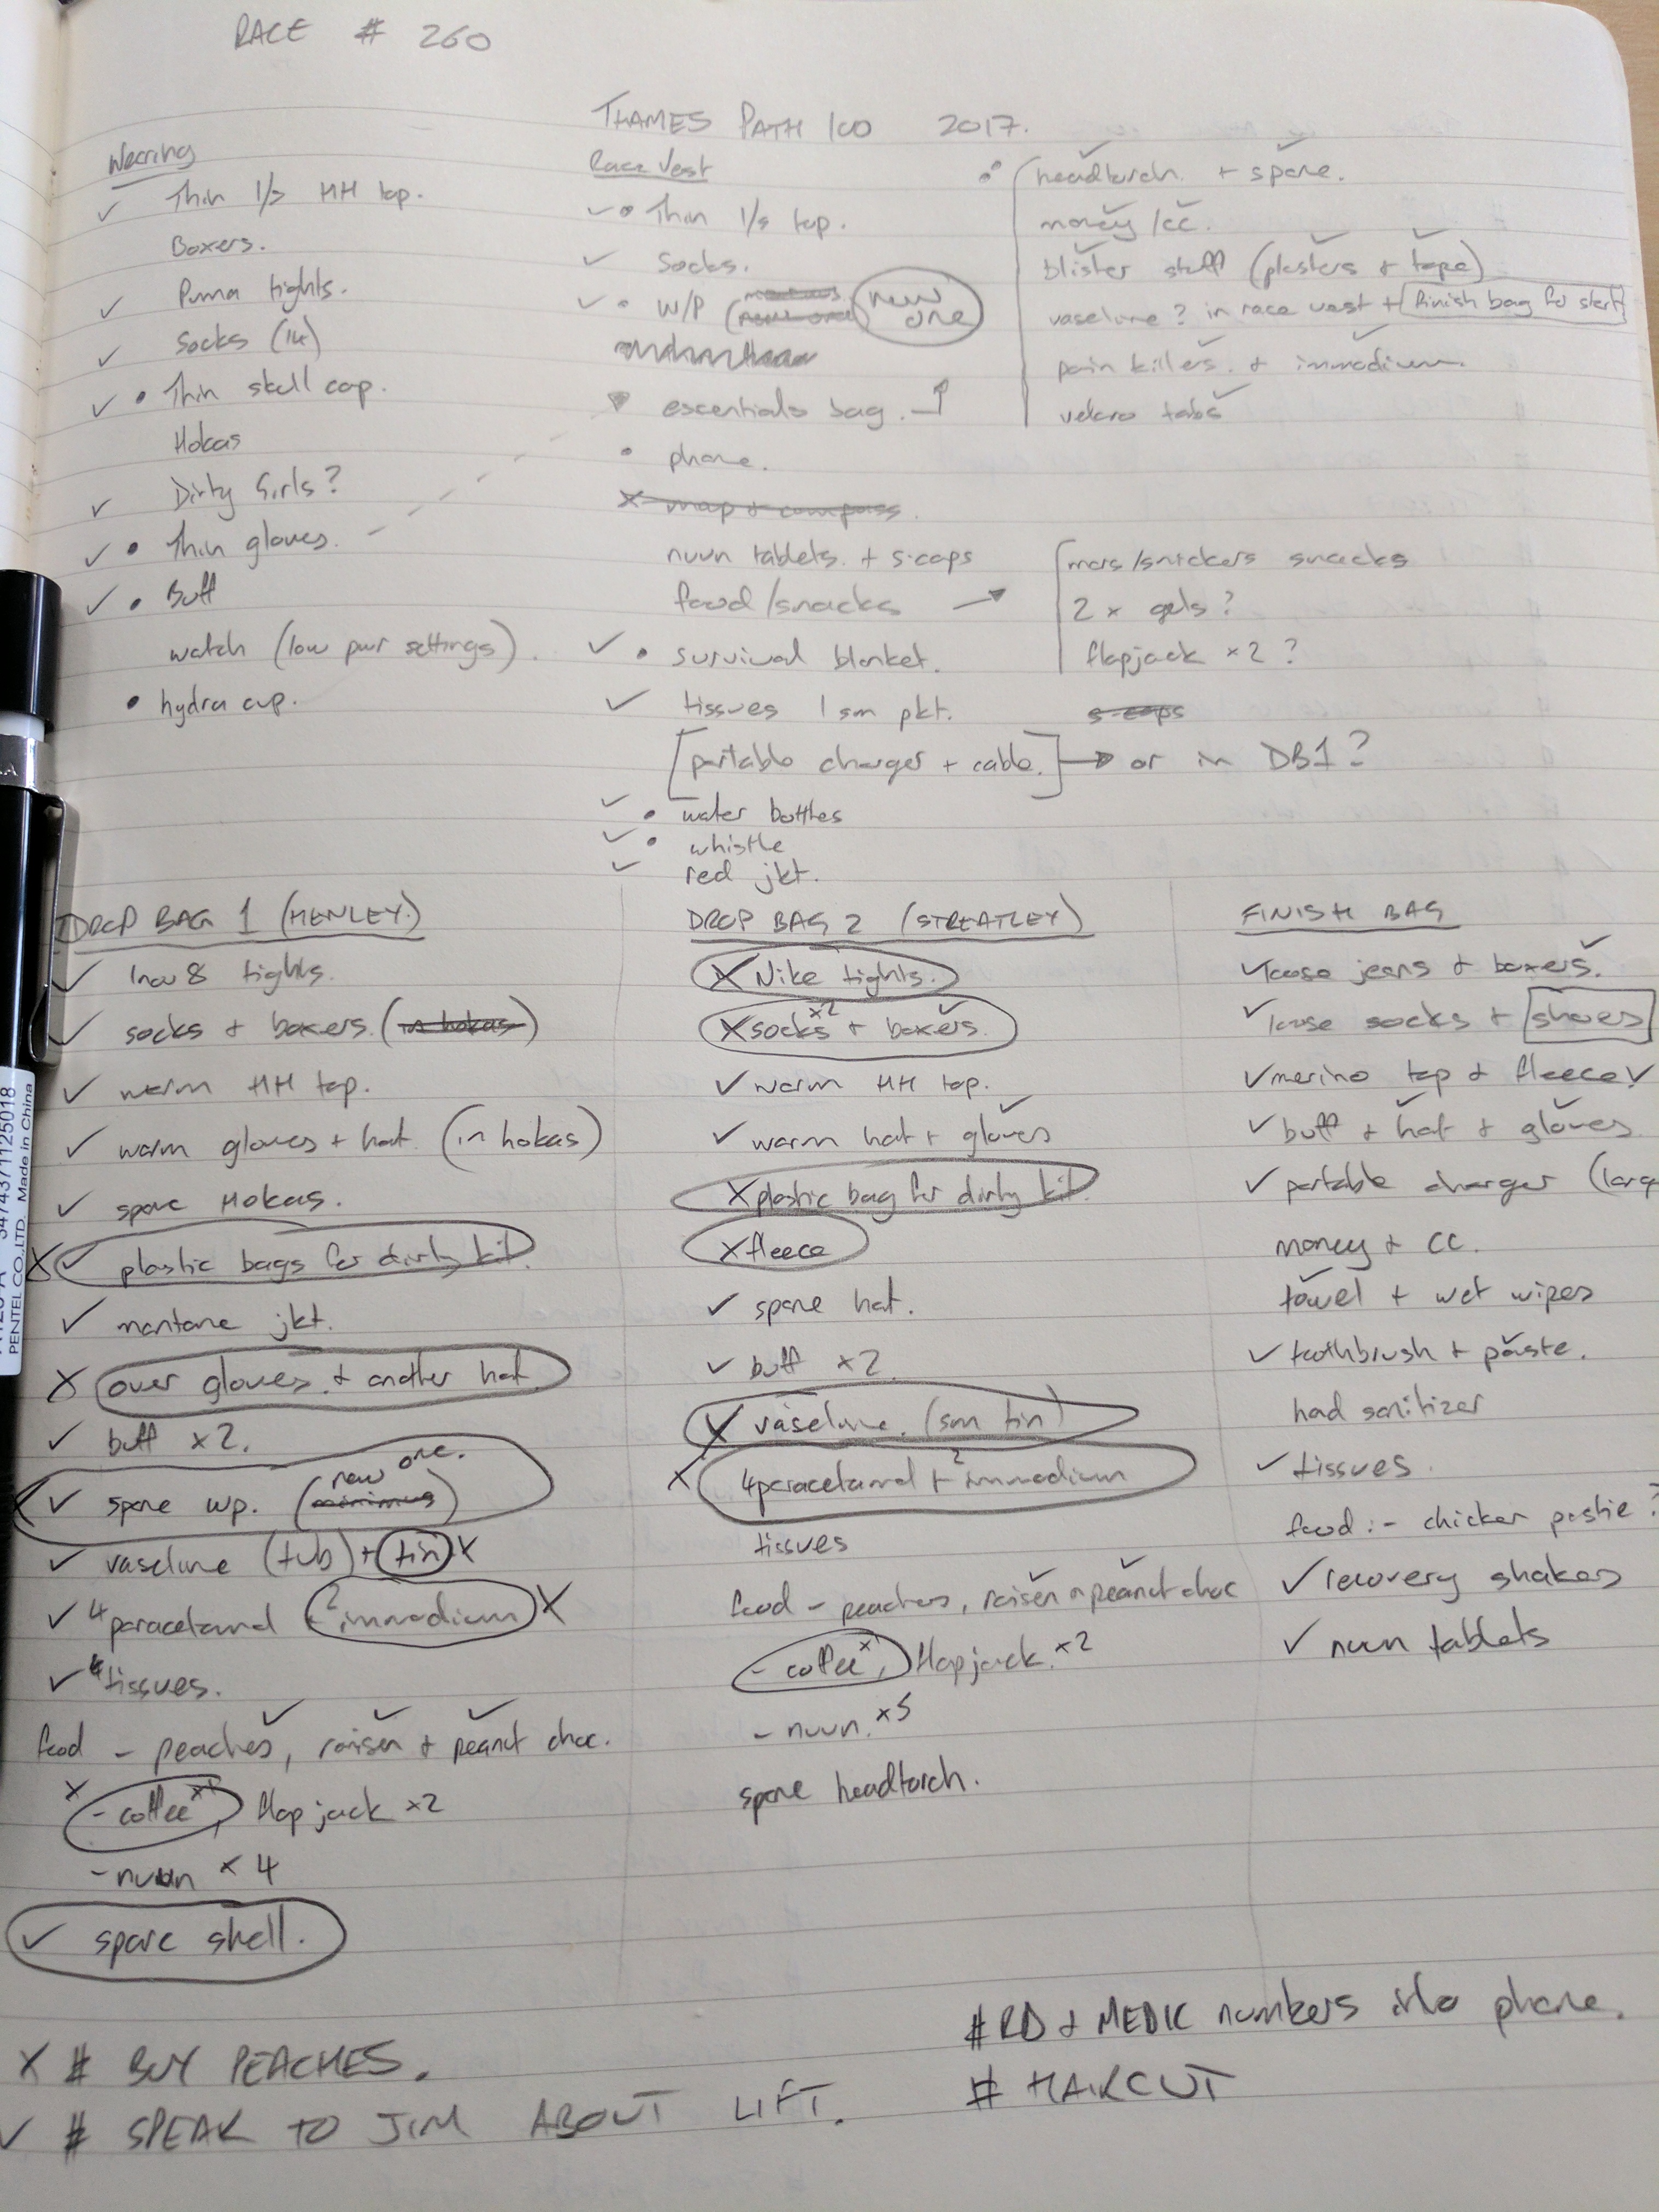 RACE # 260
THAMES PATH 100 2017.
Wearing
✓ Thin l/s HH top.
Boxers.
✓ Puma tights.
✓ Socks (14)
✓ • Thin skull cap.
Hokas
✓ Dirty Girls?
✓ • Thin gloves.
✓ • Buff
watch (low pwr settings).
• hydra cup.
Race Vest
✓ • Thin l/s top.
✓ Socks.
✓ • W/P (new one)
essentials bag.
• phone.
X map + compass.
nuun tablets. + s-caps
food/snacks →
✓ • survival blanket.
✓ tissues 1 sm pkt.
[portable charger + cable.] → or in DB1?
✓ • water bottles
✓ • whistle
✓ red jkt.
• headtorch. + spare.
money/cc.
blister stuff (plasters + tape)
vaseline? in race vest + finish bag for start
pain killers. + immodium.
velcro tabs
mars/snickers snacks
2 x gels?
flapjack x2?
s-caps
DROP BAG 1 (HENLEY.)
✓ Inov8 tights.
✓ socks + boxers. (in hokas)
✓ warm HH top.
✓ warm gloves + hat. (in hokas)
✓ spare Hokas.
X ✓ plastic bags for dirty kit.
✓ montane jkt.
X over gloves. + another hat
✓ buff x2.
✓ spare wp. (minimus) new one.
✓ vaseline (tub) + tin X
✓ 4 paracetamol + 2 immodium X
✓ tissues.
food - peaches, raisen + peanut choc.
X - coffee x1, flapjack x2
- nuun x 4
✓ spare shell.
DROP BAG 2 (STREATLEY)
X Nike tights.
X socks x2 + boxers.
✓ warm HH top.
✓ warm hat + gloves
X plastic bag for dirty kit.
X fleece
✓ spare hat.
✓ buff x2.
X vaseline. (sm tin)
X 4 paracetamol + 2 immodium
tissues
food - peaches, raisen + peanut choc
- coffee x1, flapjack. x2
- nuun. x5
spare headtorch.
FINISH BAG
✓ loose jeans + boxers.
✓ loose socks + shoes
✓ merino top + fleece ✓
✓ buff + hat + gloves
✓ portable charger (larg
money + CC.
towel + wet wipes
✓ toothbrush + paste.
had sanitizer
✓ tissues.
food :- chicken pastie?
✓ recovery shakes
✓ nuun tablets
X # BUY PEACHES.
✓ # SPEAK TO JIM ABOUT LIFT.
# RD + MEDIC numbers into phone.
# HAIRCUT
3474371125018
PENTEL CO., LTD. Made in China